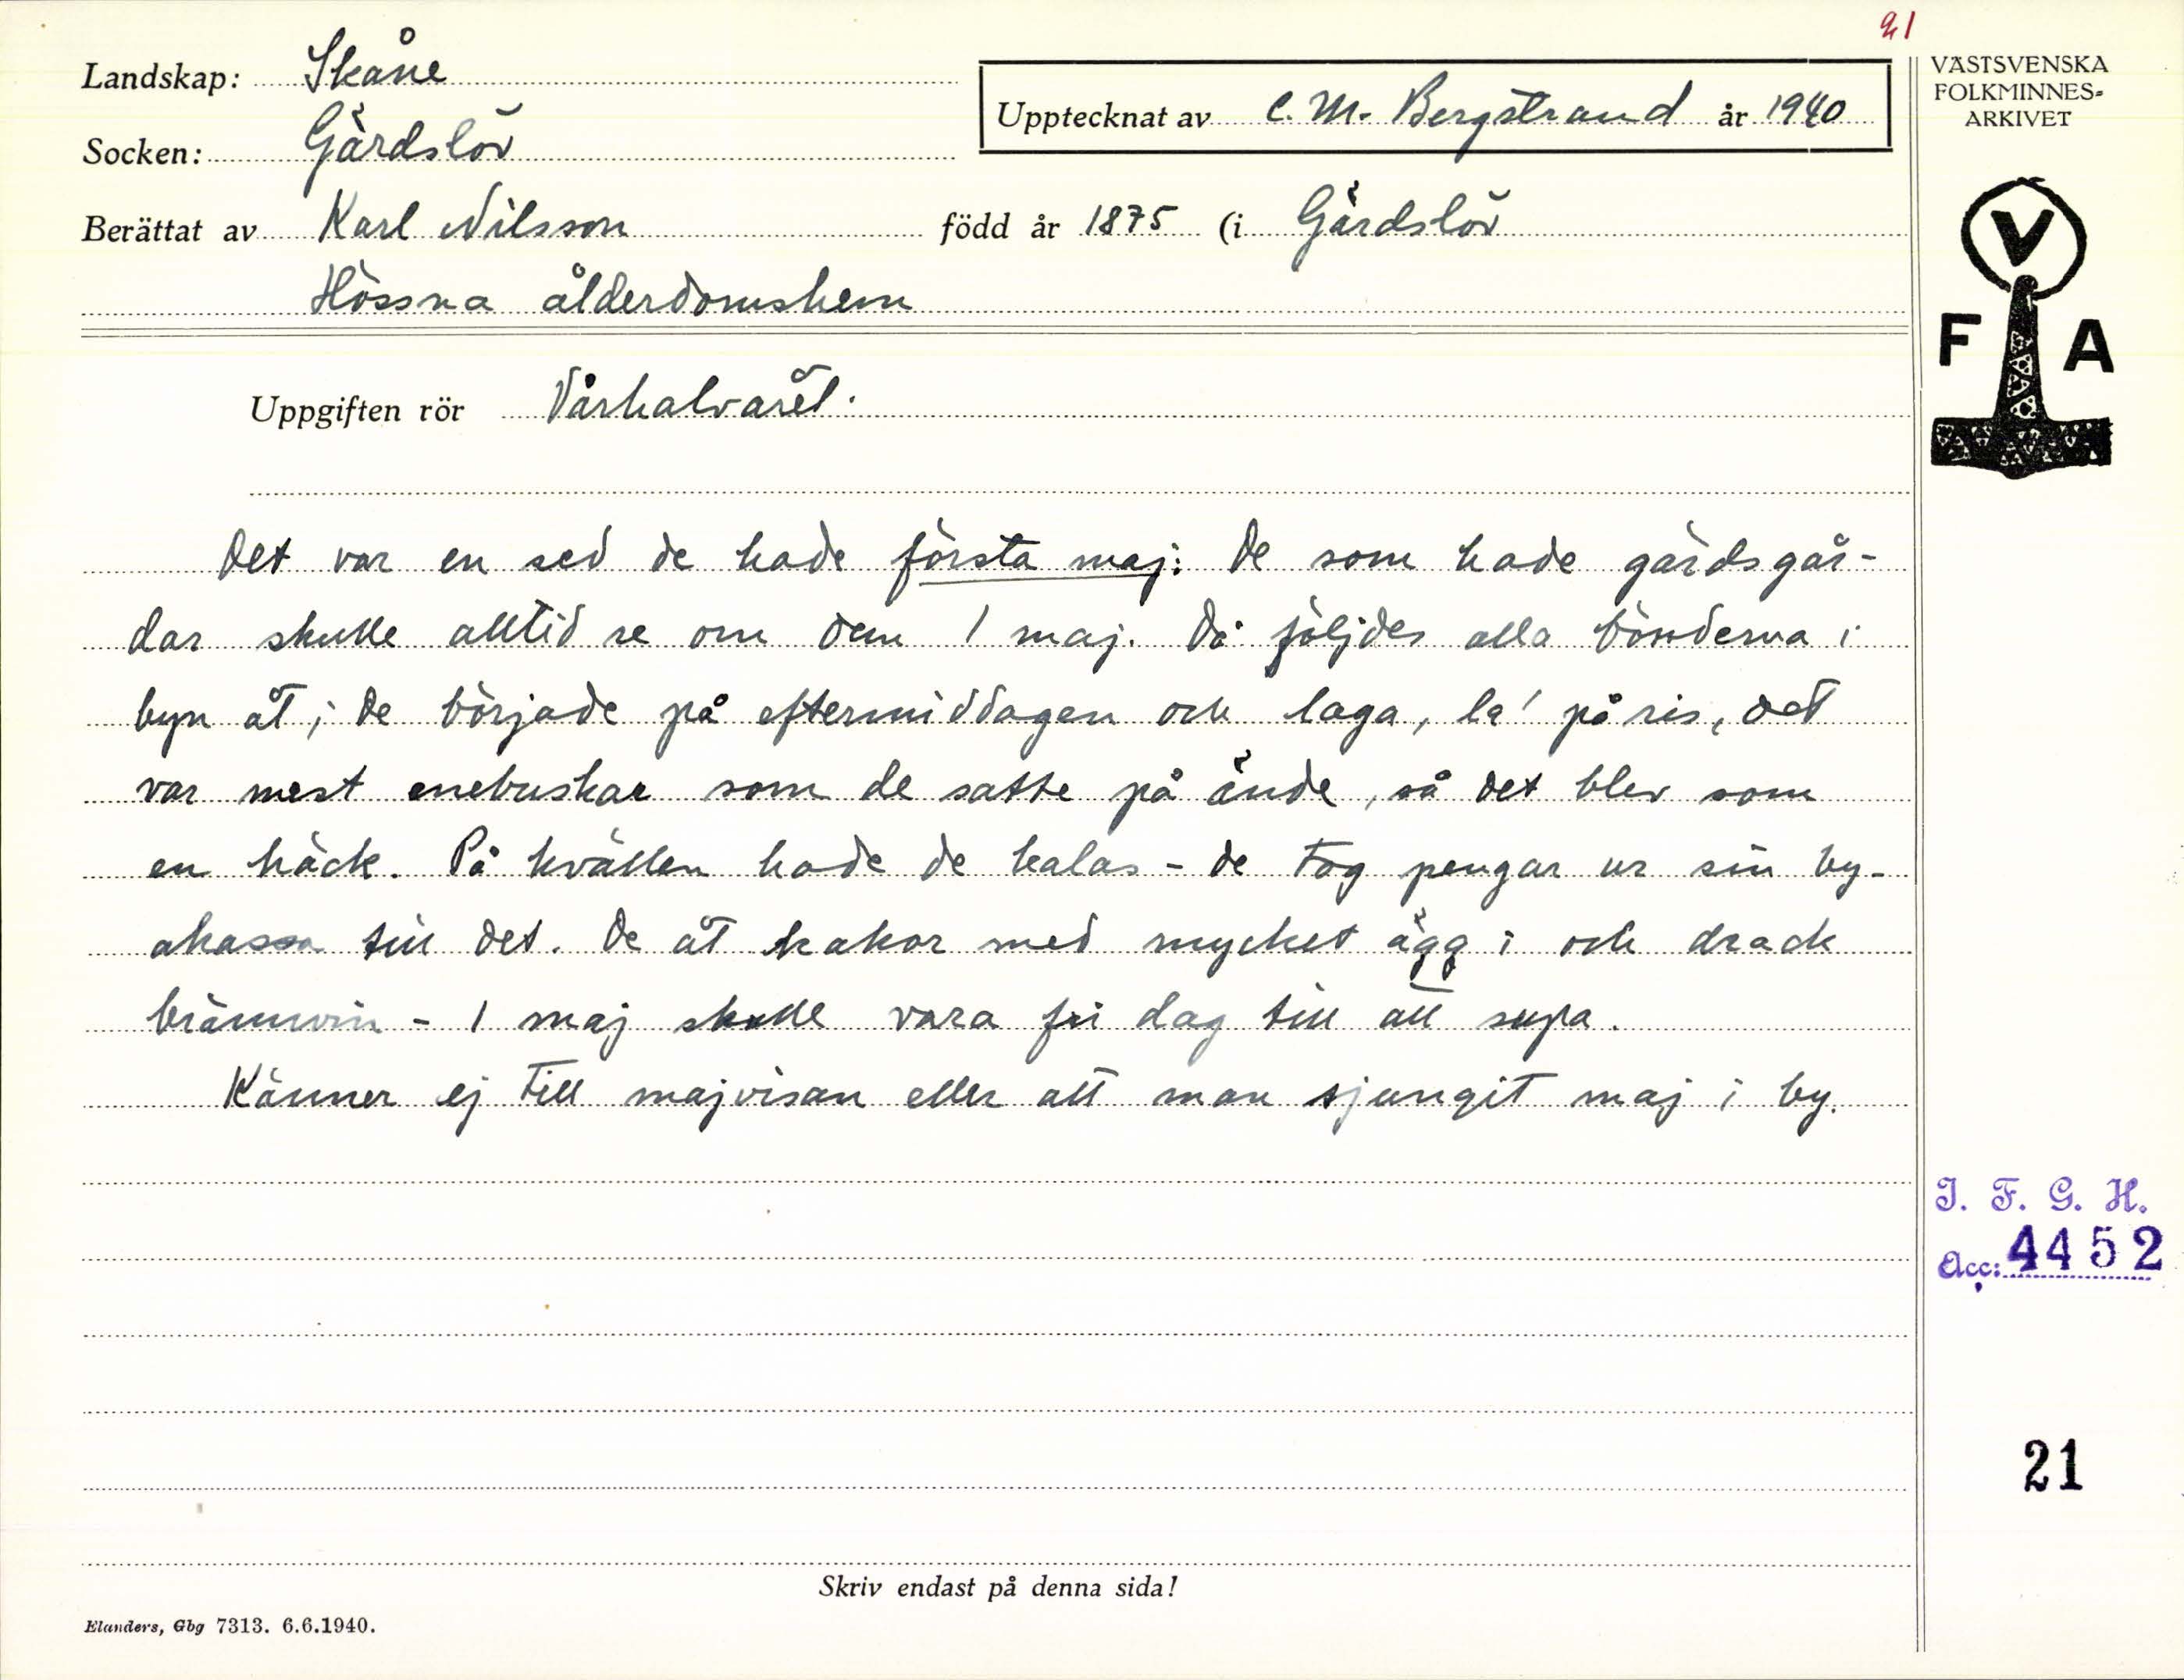 21
Landskap: Skåne
Upptecknat av C. M. Bergstrand år 1940
VÄSTSVENSKA
FOLKMINNES=
ARKIVET
Socken: Gärdslöv
Berättat av Karl Nilsson född år 1875 (i Gärdslöv
Hössna ålderdomshem
V
F A
Uppgiften rör Vårhalvåret.
Det var en sed de hade första maj: De som hade gärdsgår-
dar skulle alltid se om dem 1 maj. Då följdes alla bönderna i
byn åt; de började på eftermiddagen och laga, la' på ris, det
var mest enebuskar som de satte på ände, så det blev som
en häck. På kvällen hade de kalas - de tog pengar ur sin by-
akassa till det. De åt kakor med mycket ägg i och drack
brännvin - 1 maj skulle vara fri dag till att supa.
Känner ej till majvisan eller att man sjungit maj i by.
I. F. G. H.
Acc: 4452
21
Skriv endast på denna sida!
Elanders, Gbg 7313. 6.6.1940.